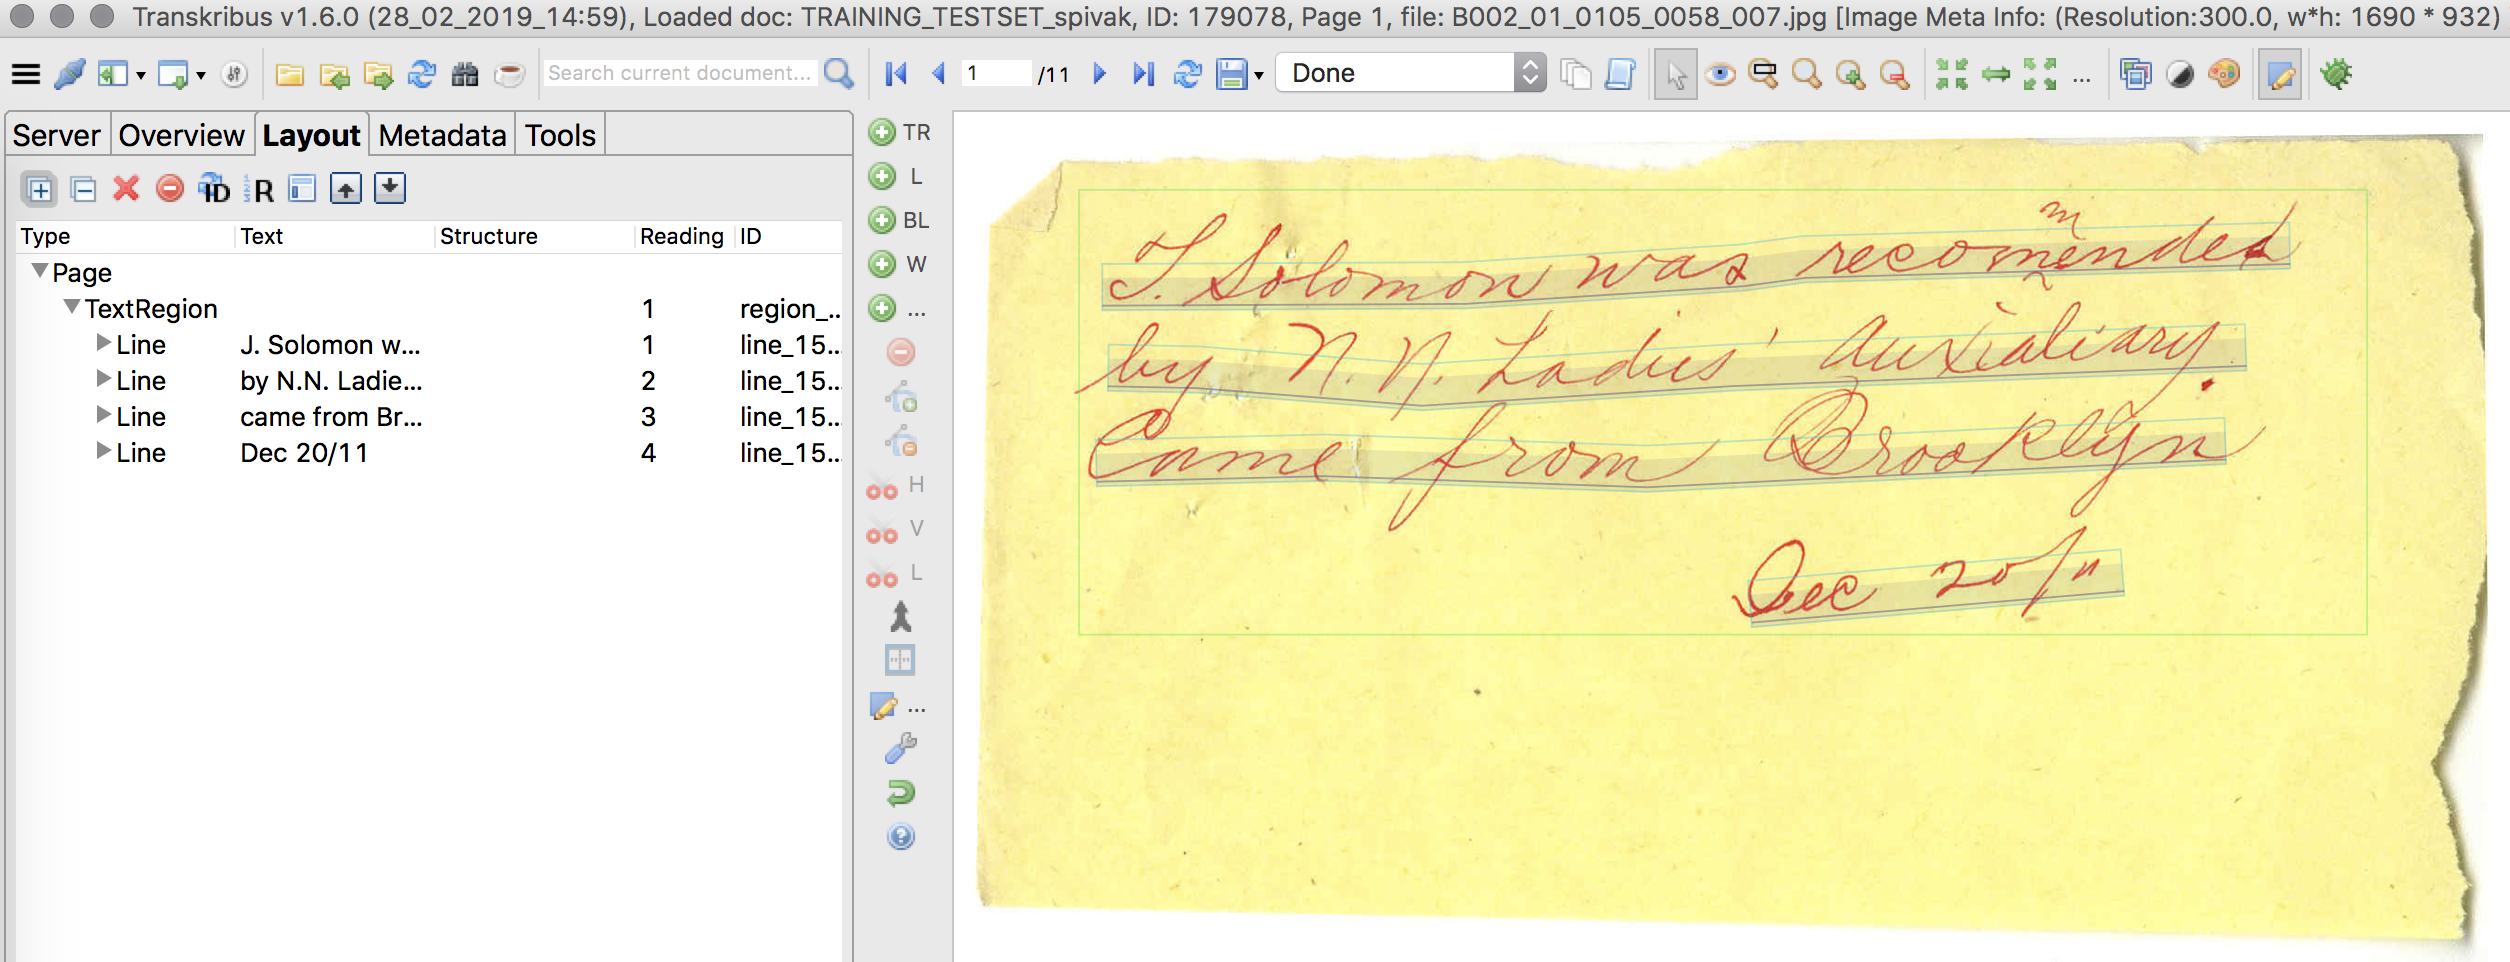 Transkribus v1.6.0 (28_02_2019_14:59), Loaded doc: TRAINING_TESTSET_spivak, ID: 179078, Page 1, file: B002_01_0105_0058_007.jpg [Image Meta Info: (Resolution:300.0, w*h: 1690 * 932)
Search current document...
1 /11
Done
...
Server Overview Layout Metadata Tools
ID R
Type Text Structure Reading ID
Page
TextRegion 1 region_..
Line J. Solomon w... 1 line_15..
Line by N.N. Ladie... 2 line_15..
Line came from Br... 3 line_15..
Line Dec 20/11 4 line_15..
TR
L
BL
W
...
H
V
L
...
m
J. Solomon was recomended
by N.N. Ladies' Auxialiary.
Came from Brooklyn
Dec 20/11